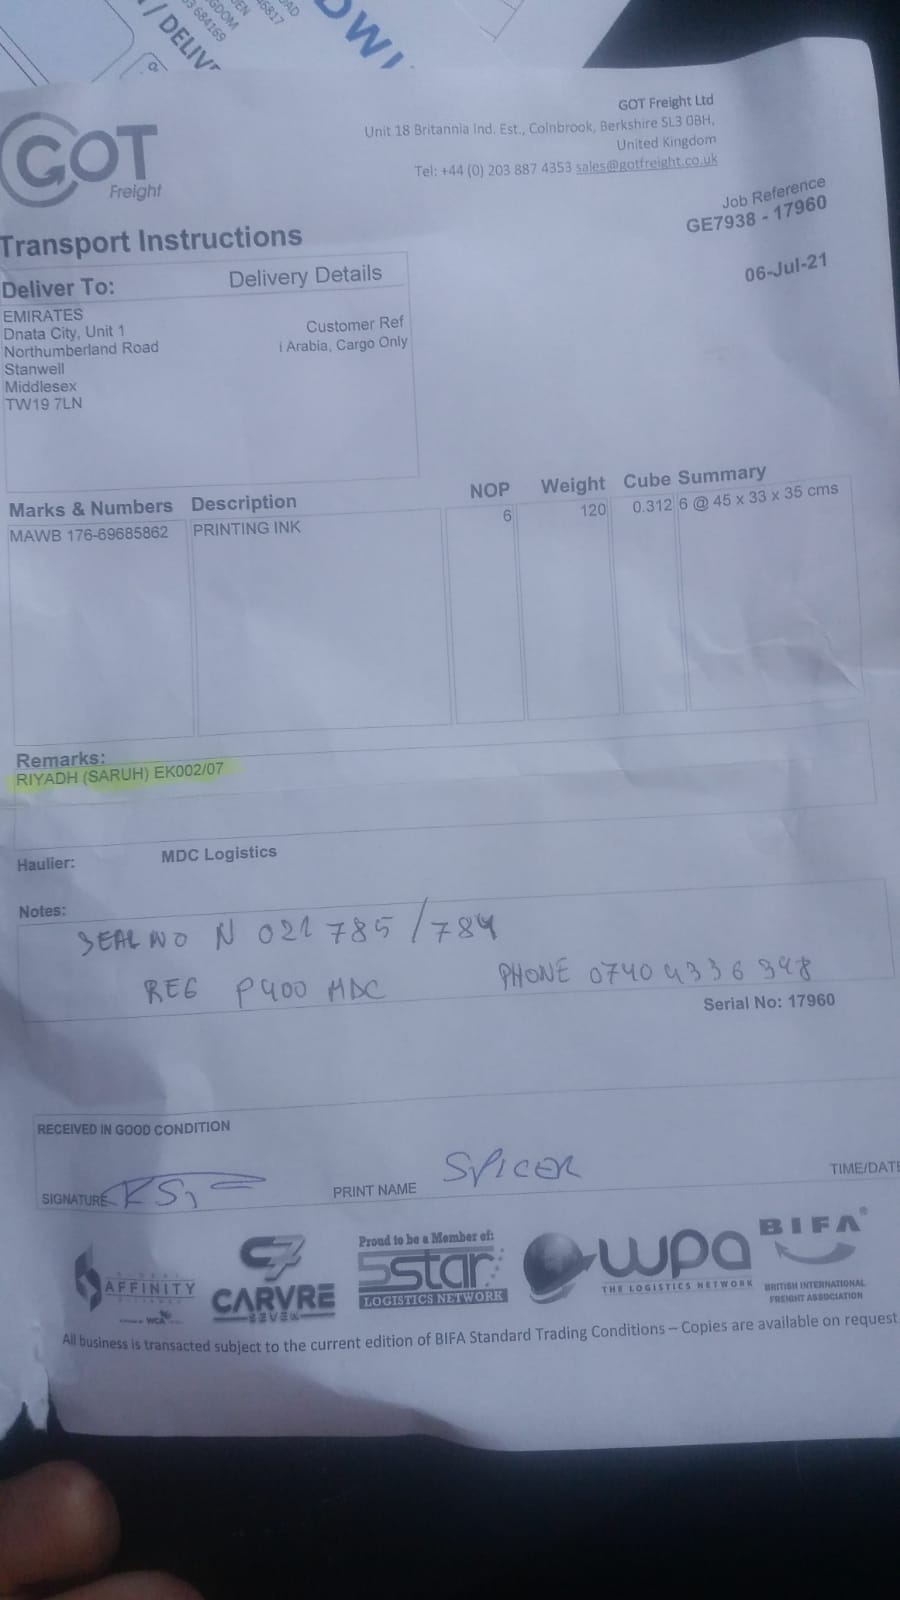 GOT
Freight
GOT Freight Ltd
Unit 18 Britannia Ind. Est., Colnbrook, Berkshire SL3 0BH,
United Kingdom
Tel: +44 (0) 203 887 4353 sales@gotfreight.co.uk
Job Reference
GE7938 - 17960
06-Jul-21
Transport Instructions
Deliver To: Delivery Details
EMIRATES
Dnata City, Unit 1
Northumberland Road
Stanwell
Middlesex
TW19 7LN
Customer Ref
i Arabia, Cargo Only
Marks & Numbers Description NOP Weight Cube Summary
MAWB 176-69685862 PRINTING INK 6 120 0.312 6 @ 45 x 33 x 35 cms
Remarks:
RIYADH (SARUH) EK002/07
Haulier: MDC Logistics
Notes:
SEAL NO N 021 785 / 784
REG P400 MDC PHONE 0740 4336 948
Serial No: 17960
RECEIVED IN GOOD CONDITION
SIGNATURE PRINT NAME SPICER TIME/DATE
AFFINITY
CARVRE
SEVEN
Proud to be a Member of:
5star
LOGISTICS NETWORK
wpa
THE LOGISTICS NETWORK
BIFA®
BRITISH INTERNATIONAL
FREIGHT ASSOCIATION
All business is transacted subject to the current edition of BIFA Standard Trading Conditions – Copies are available on request